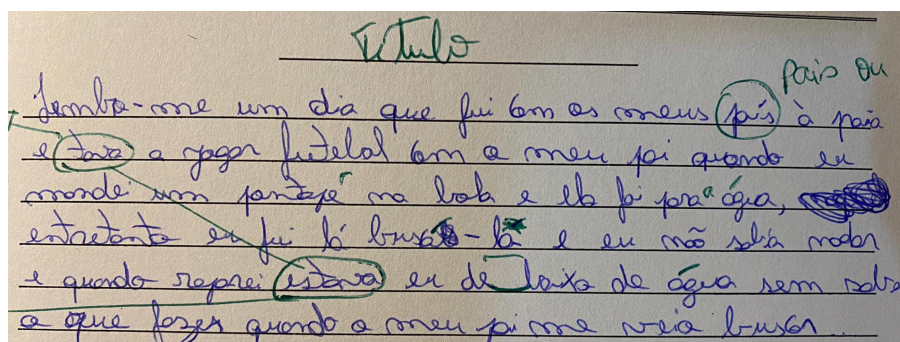 Título
pais ou
Lembo-me um dia que fui com os meus país à paia
e tava a jogar futebol com o meu pai quando eu
mandei um pontapé na bola e ela foi para a água,
entretanto eu fui lá buscá-la e eu não sabia nadar
e quando reparei estava eu de baixo de água sem saber
o que fazer quando o meu pai me veio buscar.